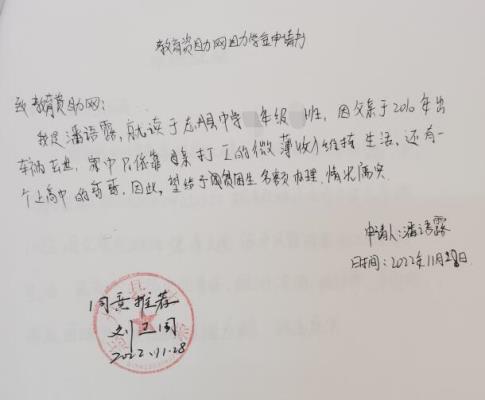 教育资助网助学金申请书
致教育资助网：
我是潘语露，就读于志丹县中学 年级 班，因父亲于2010年出
车祸去世，家中只依靠母亲打工的微薄收入维持生活，还有一
个上高中的哥哥，因此，望给于贫困生名额办理，情况属实
申请人：潘语露
日期：2022年11月28日
同意推荐
刘卫国
2022.11.28